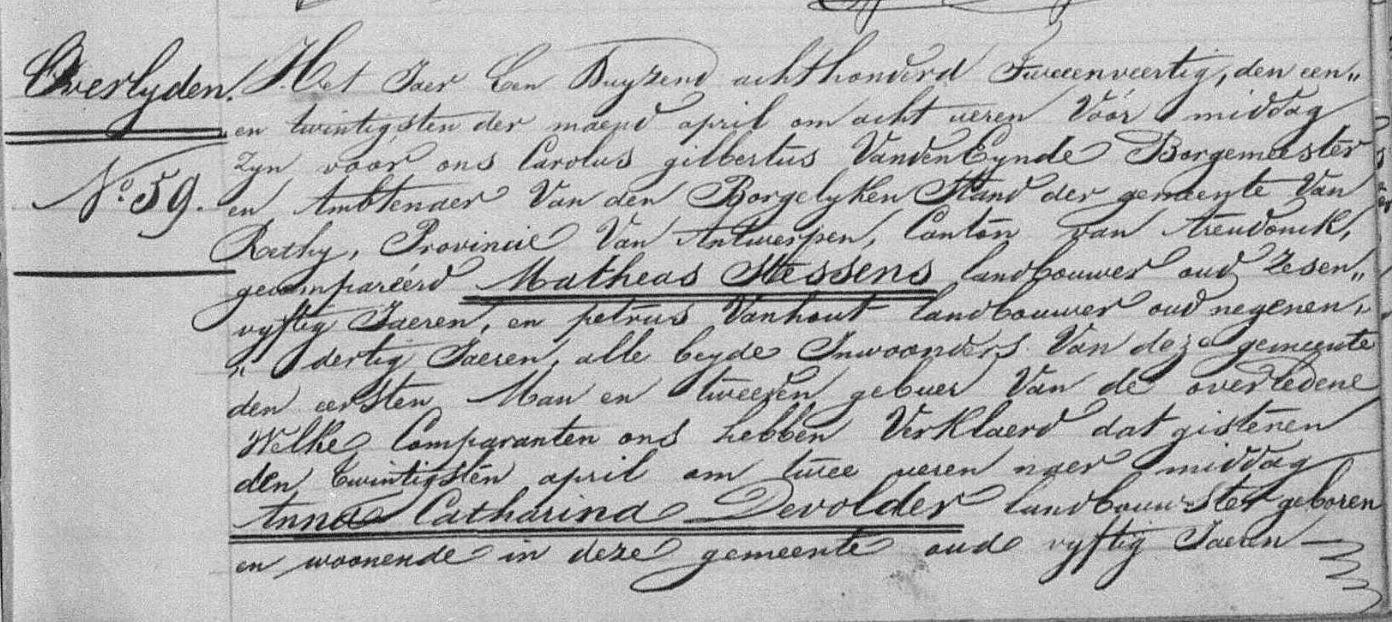 Overlyden.
N.o 59.
Het Jaer Een Duyzend achthonderd Tweeenveertig, den een„
en twintigsten der maend april om acht ueren Vóór middag
zyn vóór ons Carolus gilbertus VandenEynde Borgemeester
en Ambtenaer Van den Borgelyken Stand der gemeente Van
Rethy, Provincie Van Antwerpen, Canton van Arendonck,
gecompareérd Matheas Stessens landbouwer oud Zesen„
vyftig Jaeren, en petrus Vanhout landbouwer oud negenen„
„ dertig Jaeren, alle beyde Inwoonders Van deze gemeente
den eersten Man en tweeden gebuer Van de overledene
Welke Comparanten ons hebben Verklaerd dat gisteren
den twintigsten april om twee ueren naer middag
Anna Catharina Devolder landbouwster geboren
en woonende in deze gemeente oud vyftig Jaeren